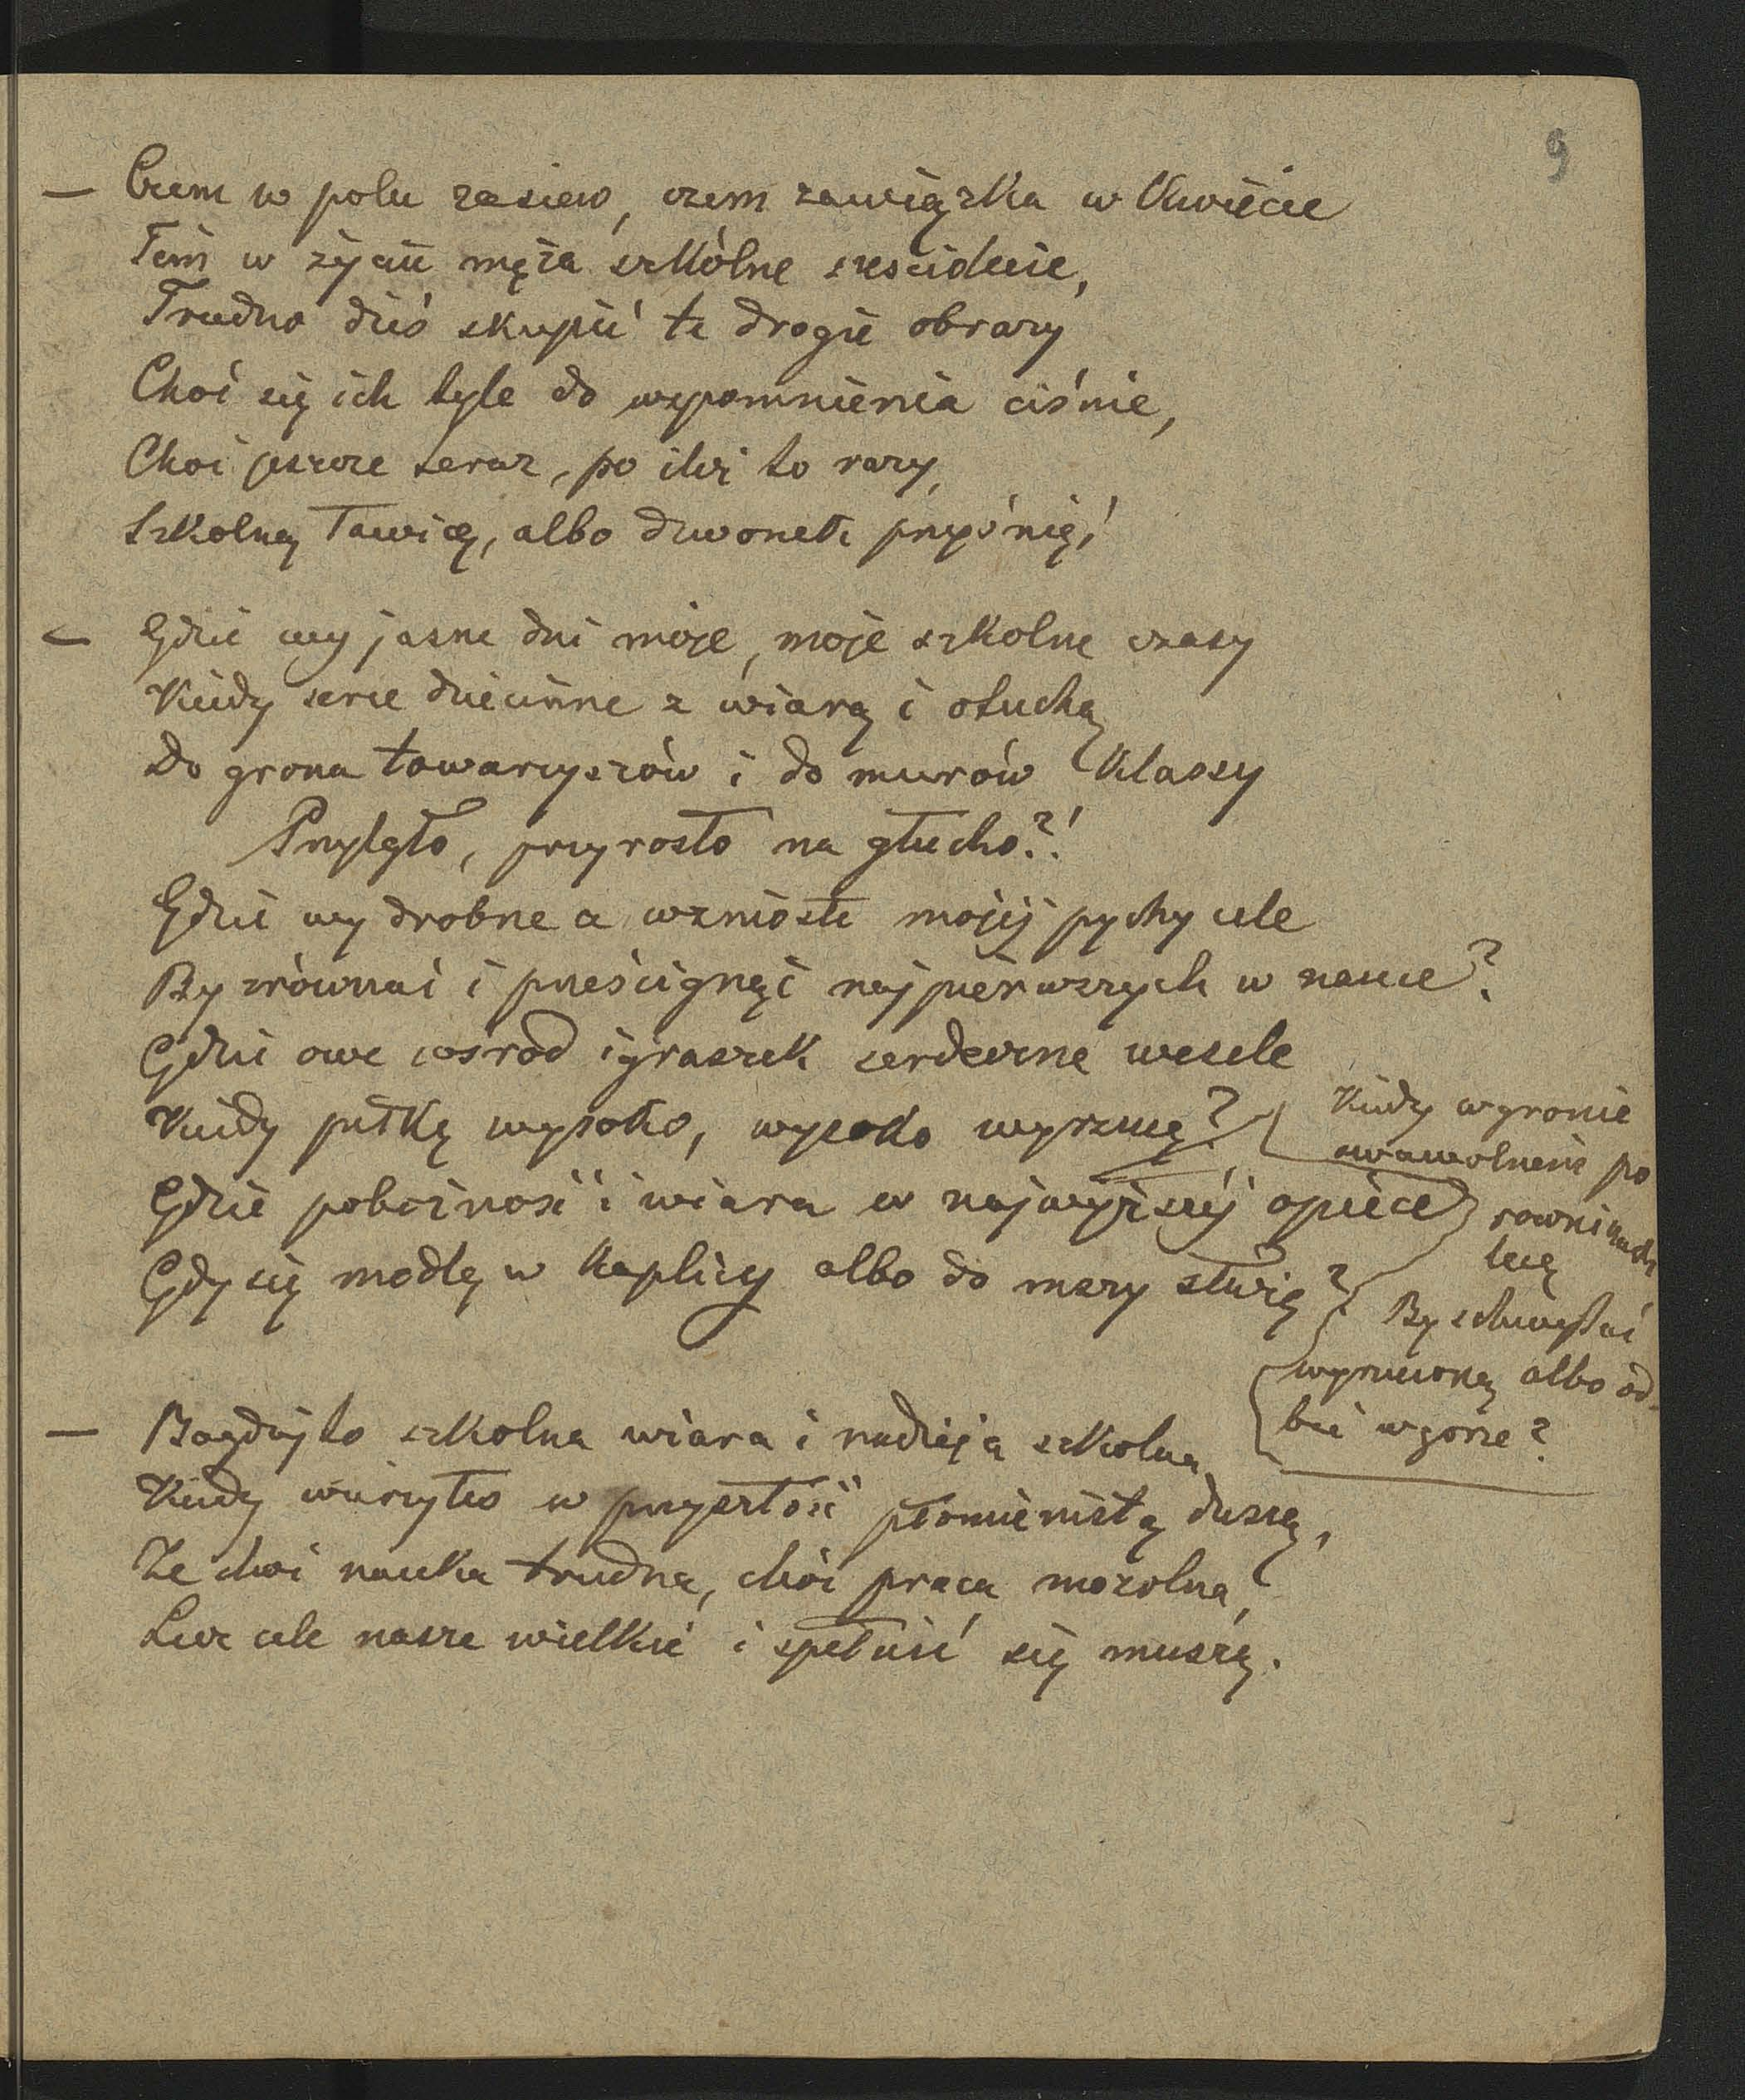 9
— Czem w polu zasiew, czem zawiązka w kwiecie
Tém w życiu męża szkólne sześciolecie,
Trudno dziś skupić te drogie obrazy
Choć się ich tyle do wspomnienia ciśnie,
Choć jeszcze teraz, po ileż to razy,
Szkolną ławicę, albo dzwonek prześnię!
— Gdzie wy jasne dni moje, moje szkolne czasy
Kiedy serce dziecinne z wiarą i otuchą
Do grona towarzyszów i do murów klassy
Przylgło, przyrosło na głucho?!
Gdzie wy drobne a wzniosłe mojéj pychy cele
By zrównać i prześcignąć najpierwszych w nauce?
Gdzie owe wśród igraszek serdeczne wesele
Kiedy piłkę wysoko, wysoko wyrzucę?
Kiedy w gronie
swawolnem po
rowninach
lecę
By schwytać
wyrzuconą albo od-
bić w górze?
Gdzie pobożność i wiara w najwyższéj opiece
Gdy się modlę w kaplicy albo do mszy służę?
— Bogdajto szkolna wiara i nadzieja szkolna,
Kiedy wierzyło w przyszłość płomienistą duszą,
Że choć nauka trudna, choć praca mozolna,
Lecz cele nasze wielkie i spełnić się muszą.